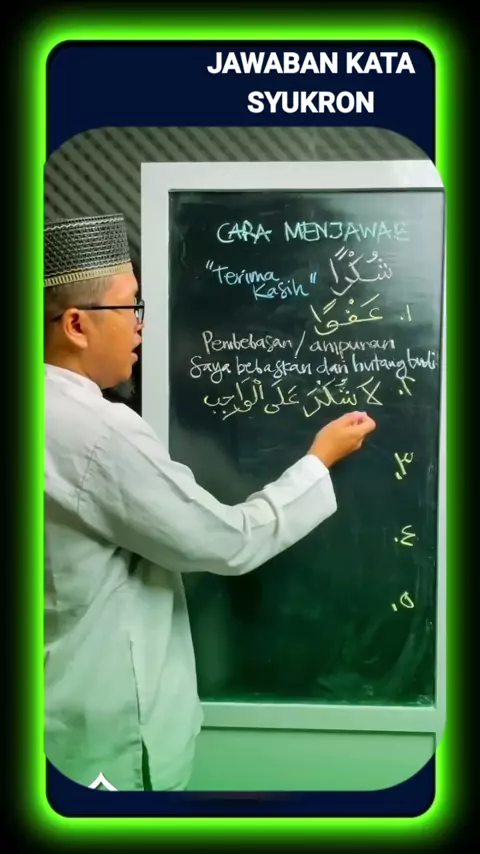 JAWABAN KATA
SYUKRON
CARA MENJAWAB
"Terima Kasih" شُكْرًا
١. عَفْوًا
Pembebasan / ampunan
Saya bebaskan dari hutang budi
٢. لَا شُكْرَ عَلَى الْوَاجِبِ
٣.
٤.
٥.